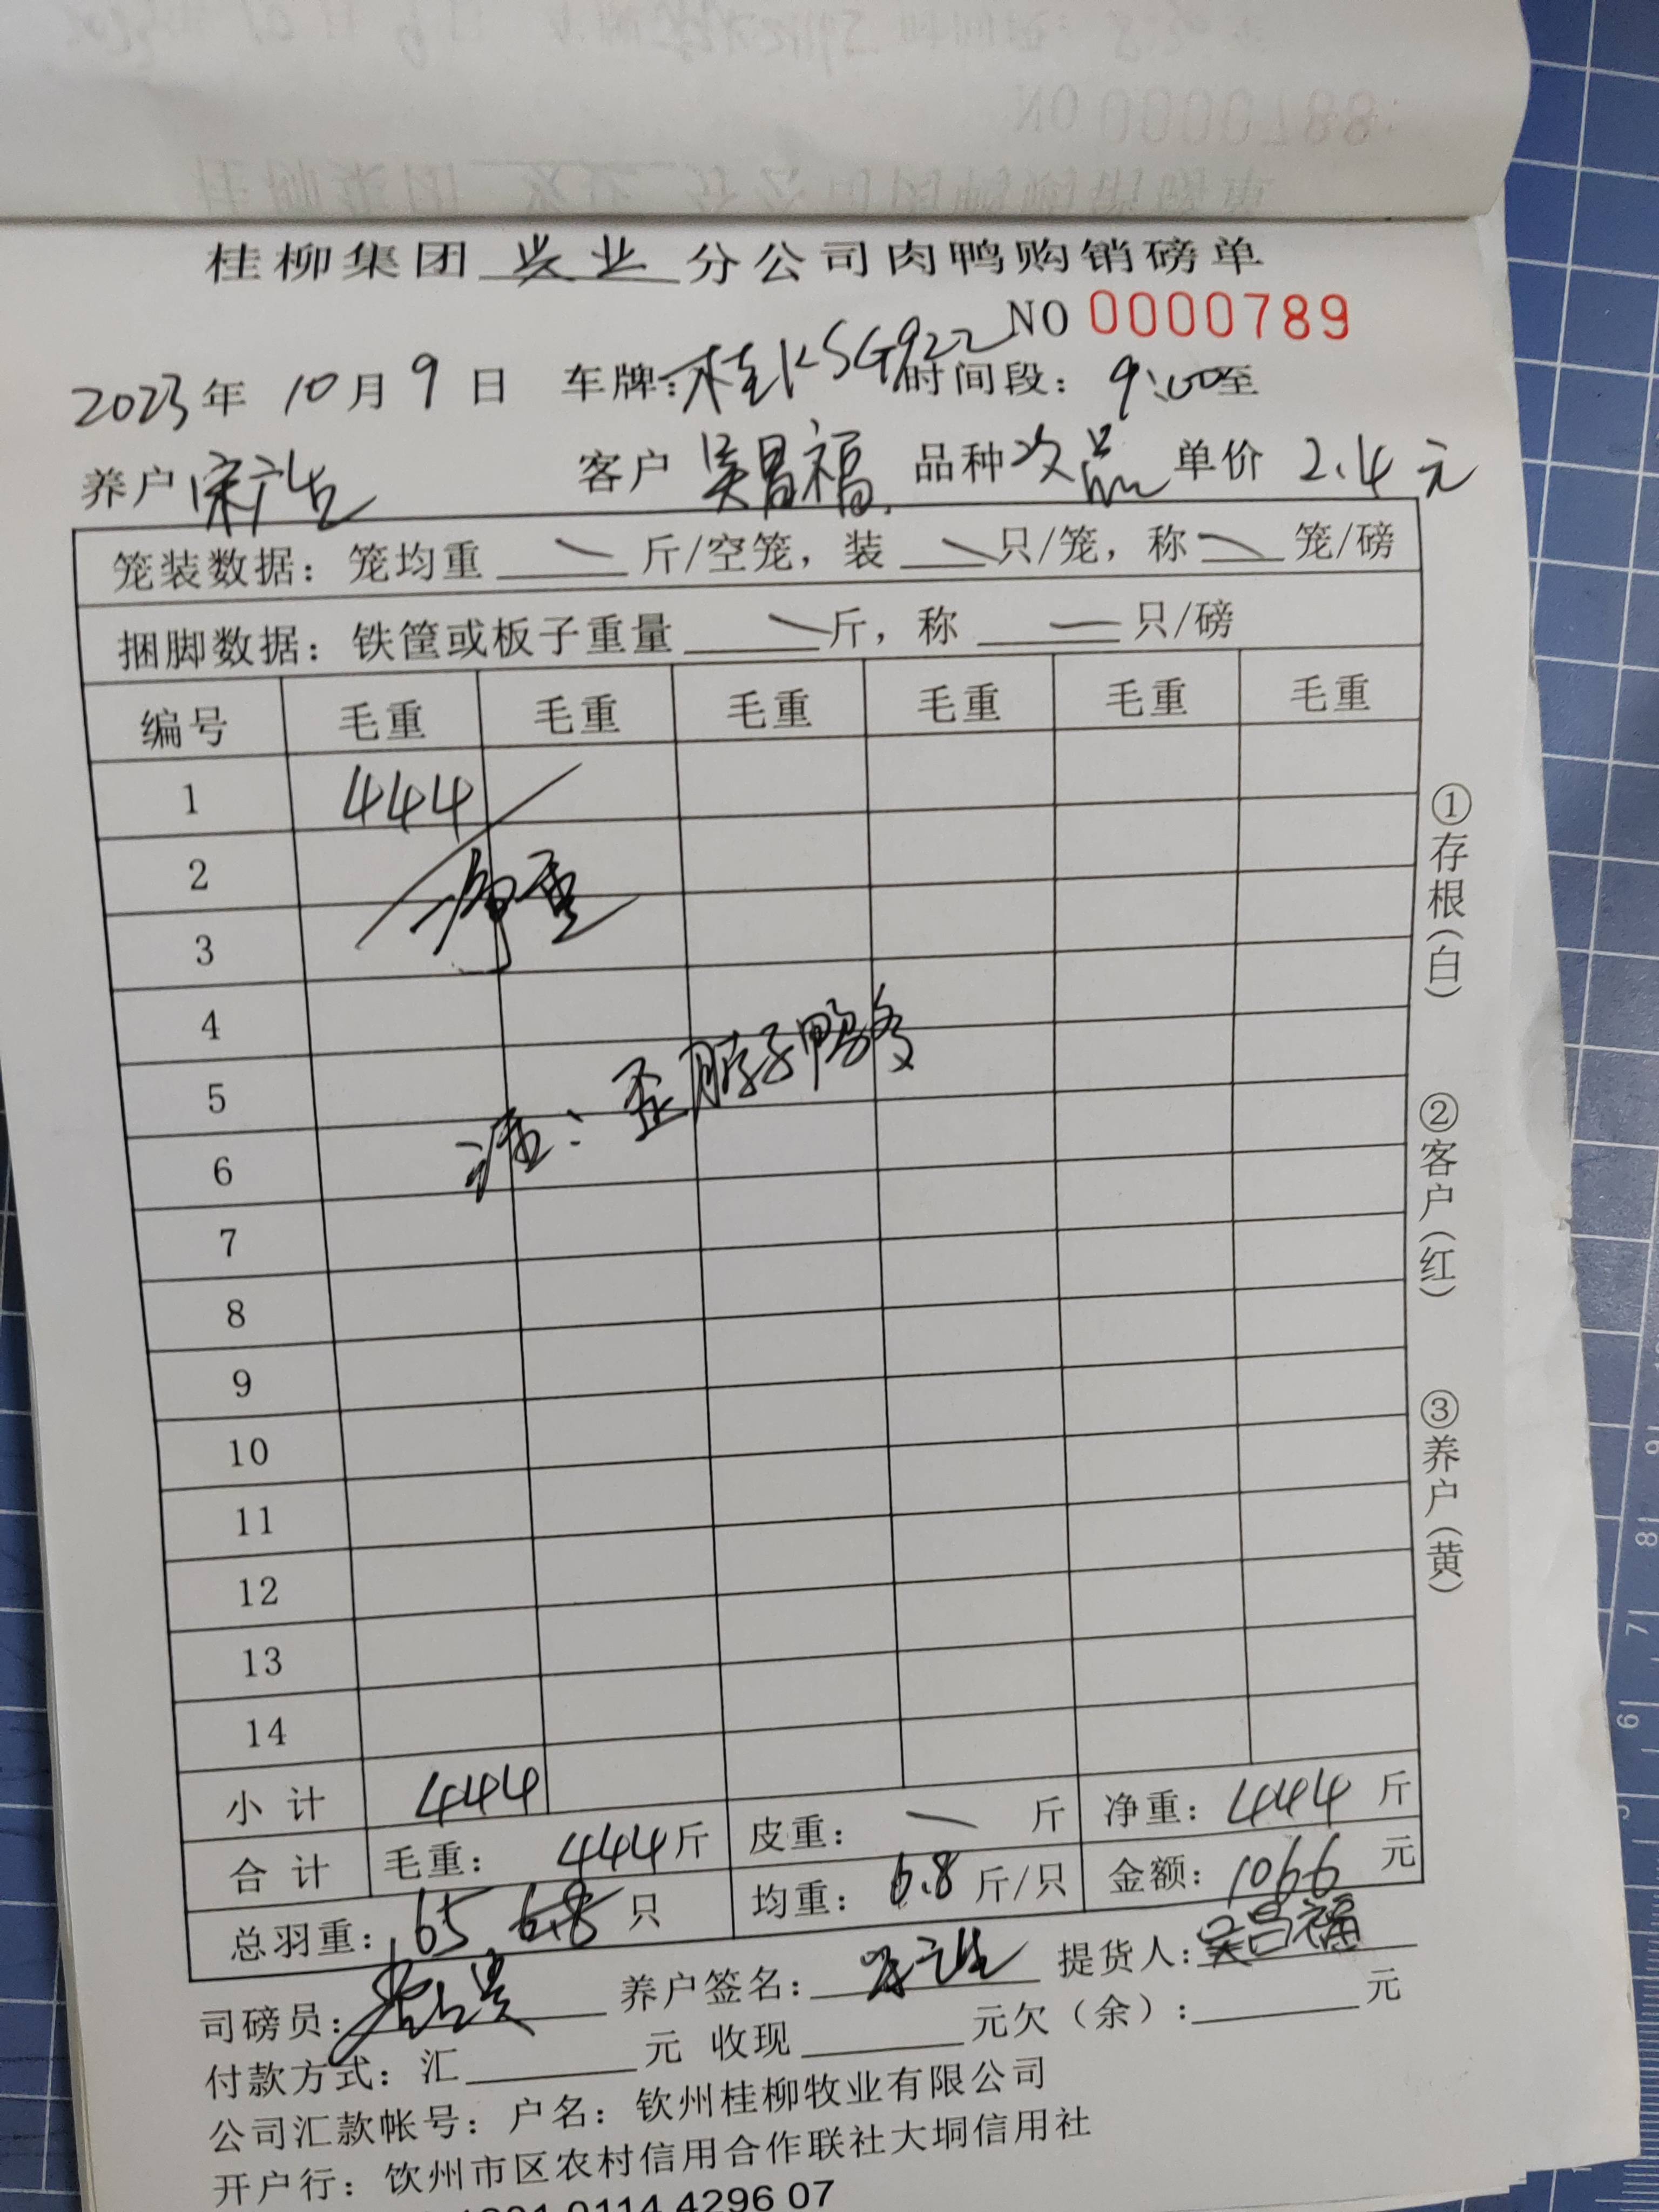 桂柳集团 兴业 分公司肉鸭购销磅单
NO 0000789
2023年 10月 9日 车牌：桂KSG922 时间段：9:00至
养户 宋广生 客户 吴昌福 品种 次品 单价 2.4 元
笼装数据：笼均重 — 斤/空笼，装 — 只/笼，称 — 笼/磅
捆脚数据：铁筐或板子重量 — 斤，称 — 只/磅
编号 毛重 毛重 毛重 毛重 毛重 毛重
1 444
2 净重
3
4
5 注：歪脖子鸭多
6
7
8
9
10
11
12
13
14
小计 444
合计 毛重：444斤 皮重：— 斤 净重：444 斤
总羽重：65 6.8 只 均重：6.8 斤/只 金额：1066 元
司磅员： 养户签名： 提货人：吴昌福
付款方式：汇 元 收现 元欠（余）： 元
公司汇款帐号：户名：钦州桂柳牧业有限公司
开户行：钦州市区农村信用合作联社大垌信用社
0114 4296 07
①存根（白）
②客户（红）
③养户（黄）